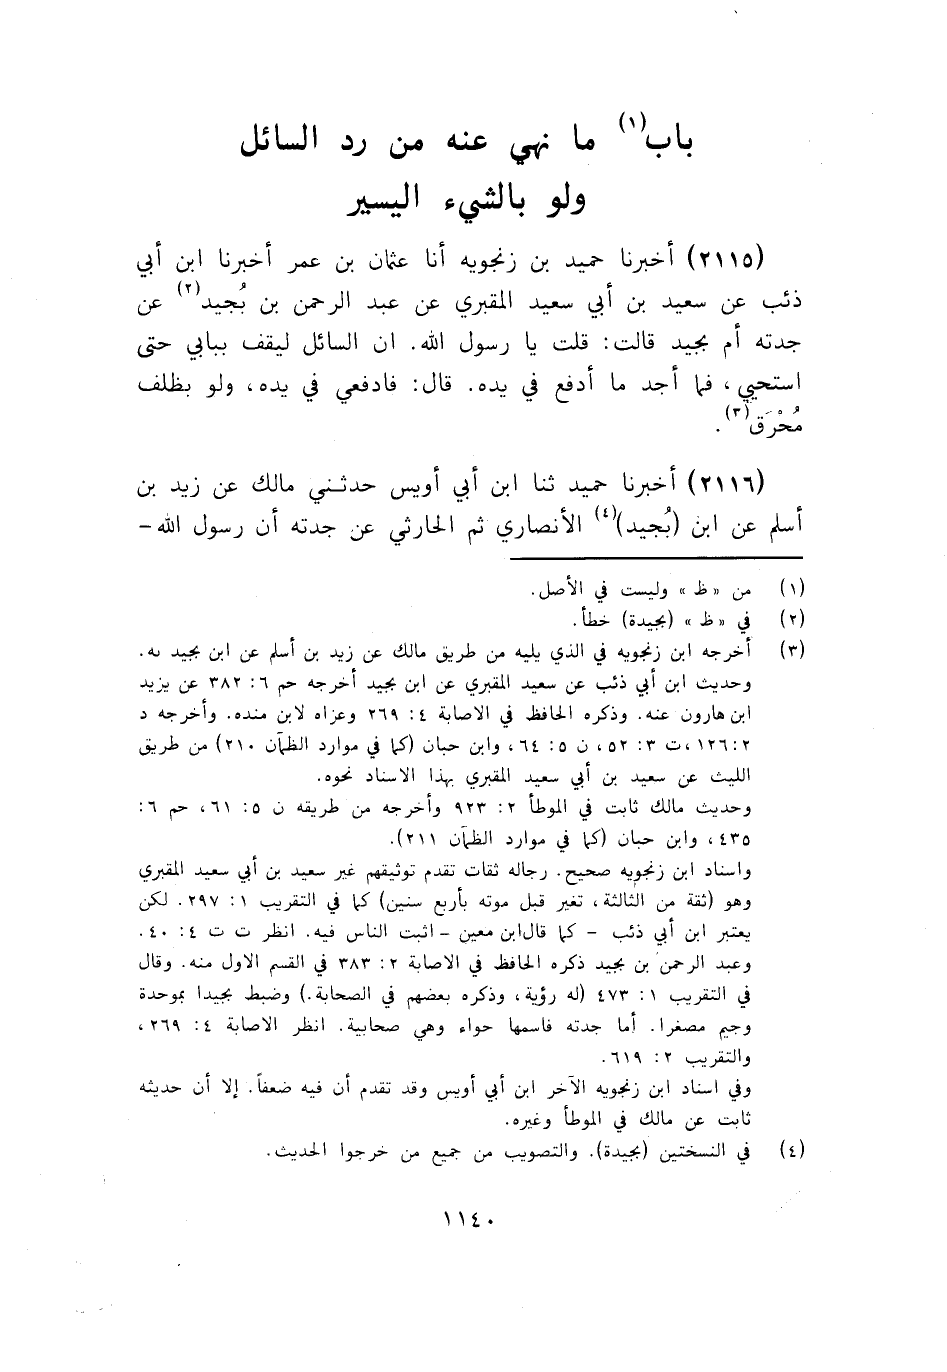 باب(١) ما نهي عنه من رد السائل
ولو بالشيء اليسير
(٢١١٥) أخبرنا حميد بن زنجويه أنا عثمان بن عمر أخبرنا ابن أبي
ذئب عن سعيد بن أبي سعيد المقبري عن عبد الرحمن بن بُجيد(٢) عن
جدته أم بجيد قالت: قلت يا رسول الله. ان السائل ليقف ببابي حتى
استحيي، فما أجد ما أدفع في يده. قال: فادفعي في يده، ولو بظلف
مُحْرَق(٣).
(٢١١٦) أخبرنا حميد ثنا ابن أبي أويس حدثني مالك عن زيد بن
أسلم عن ابن (بُجيد)(٤) الأنصاري ثم الحارثي عن جدته أن رسول الله -
(١) من «ظ» وليست في الأصل.
(٢) في «ظ» (بجيدة) خطأ.
(٣) أخرجه ابن زنجويه في الذي يليه من طريق مالك عن زيد بن أسلم عن ابن بجيد به.
وحديث ابن أبي ذئب عن سعيد المقبري عن ابن بجيد أخرجه حم ٦: ٣٨٢ عن يزيد
ابن هارون عنه. وذكره الحافظ في الاصابة ٤: ٢٦٩ وعزاه لابن منده. وأخرجه د
٢: ١٢٦، ت ٣: ٥٢، ن ٥: ٦٤، وابن حبان (كما في موارد الظمآن ٢١٠) من طريق
الليث عن سعيد بن أبي سعيد المقبري بهذا الاسناد نحوه.
وحديث مالك ثابت في الموطأ ٢: ٩٢٣ وأخرجه من طريقه ن ٥: ٦١، حم ٦:
٤٣٥، وابن حبان (كما في موارد الظمآن ٢١١).
واسناد ابن زنجويه صحيح. رجاله ثقات تقدم توثيقهم غير سعيد بن أبي سعيد المقبري
وهو (ثقة من الثالثة، تغير قبل موته بأربع سنين) كما في التقريب ١: ٢٩٧. لكن
يعتبر ابن أبي ذئب - كما قال ابن معين - اثبت الناس فيه. انظر ت ت ٤: ٤٠.
وعبد الرحمن بن بجيد ذكره الحافظ في الاصابة ٢: ٣٨٣ في القسم الاول منه. وقال
في التقريب ١: ٤٧٣ (له رؤية، وذكره بعضهم في الصحابة.) وضبط بجيدا بموحدة
وجيم مصغرا. أما جدته فاسمها حواء وهي صحابية. انظر الاصابة ٤: ٢٦٩،
والتقريب ٢: ٦١٩.
وفي اسناد ابن زنجويه الآخر ابن أبي أويس وقد تقدم أن فيه ضعفاً. إلا أن حديثه
ثابت عن مالك في الموطأ وغيره.
(٤) في النسختين (بجيدة). والتصويب من جميع من خرجوا الحديث.
١١٤٠